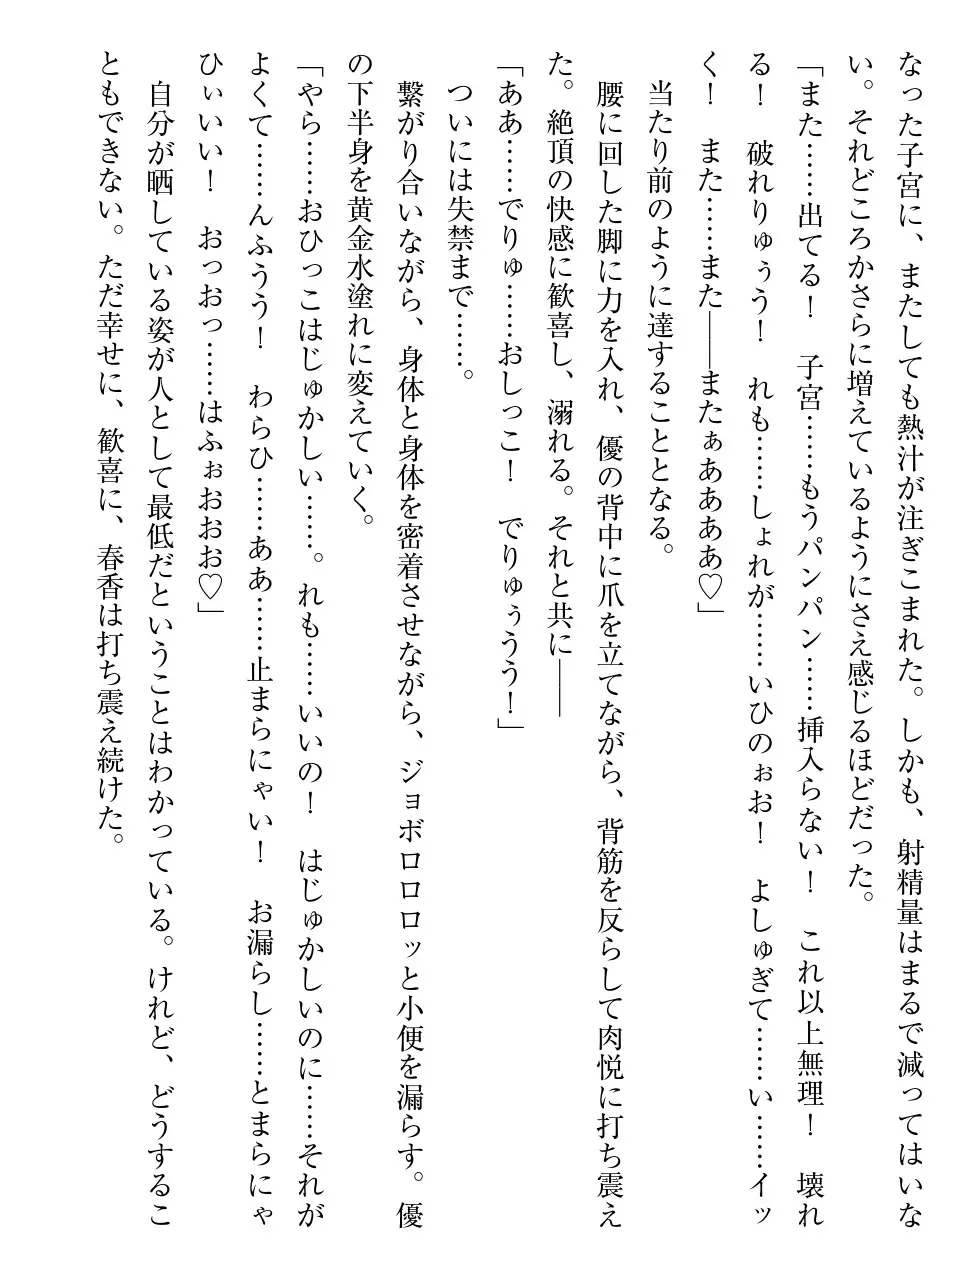 なった子宮に、またしても熱汁が注ぎこまれた。しかも、射精量はまるで減ってはいな
い。それどころかさらに増えているようにさえ感じるほどだった。
「また……出てる！　子宮……もうパンパン……挿入らない！　これ以上無理！　壊れ
る！　破れりゅぅう！　れも……しょれが……いひのぉお！　よしゅぎて……い……イッ
く！　また……また――またぁあああ♡」
当たり前のように達することとなる。
腰に回した脚に力を入れ、優の背中に爪を立てながら、背筋を反らして肉悦に打ち震え
た。絶頂の快感に歓喜し、溺れる。それと共に――
「ああ……でりゅ……おしっこ！　でりゅぅうう！」
ついには失禁まで……。
繋がり合いながら、身体と身体を密着させながら、ジョボロロロッと小便を漏らす。優
の下半身を黄金水塗れに変えていく。
「やら……おひっこはじゅかしい……。れも……いいの！　はじゅかしいのに……それが
よくて……んふうう！　わらひ……ああ……止まらにゃい！　お漏らし……とまらにゃ
ひぃいい！　おっおっ……はふぉおおお♡」
自分が晒している姿が人として最低だということはわかっている。けれど、どうするこ
ともできない。ただ幸せに、歓喜に、春香は打ち震え続けた。